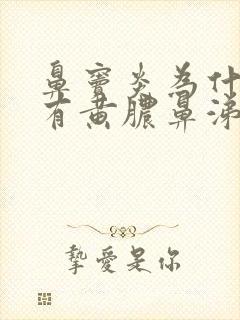 鼻窦炎为什
有黄脓鼻涕
挚爱是你